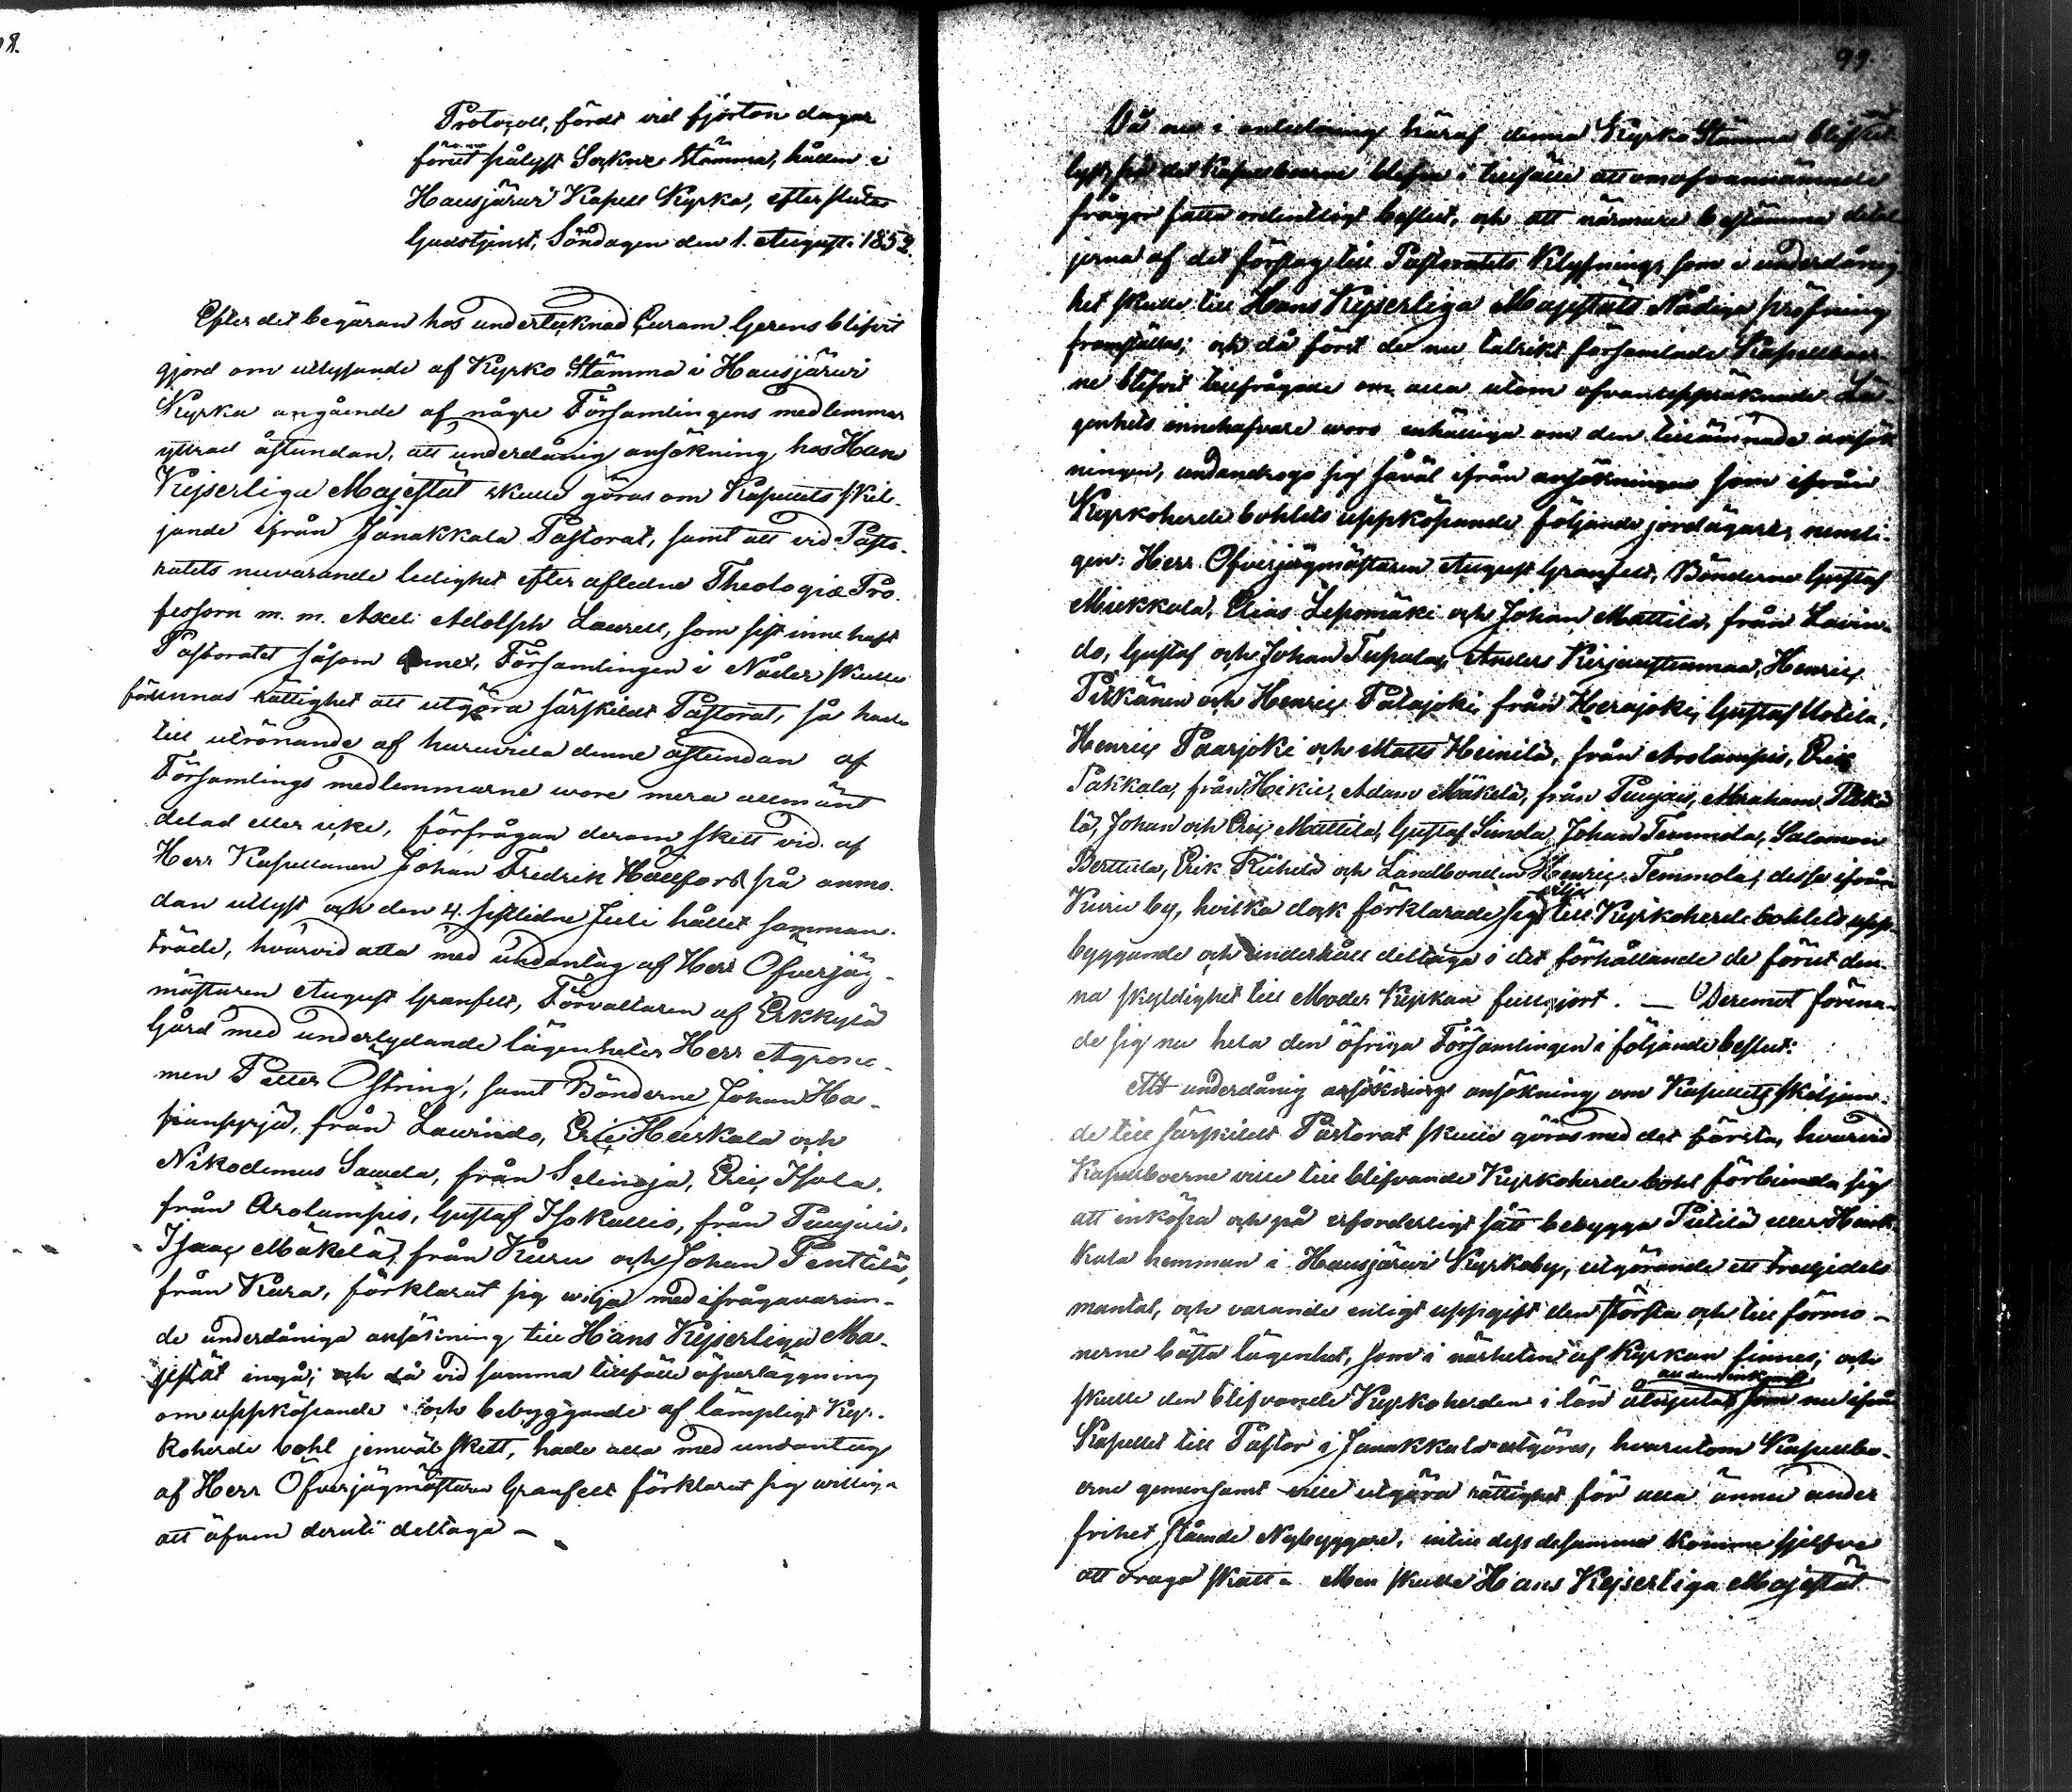 98.
Protocoll, fördt vid fjorton dagar
förut pålyst Sockne Stämma, hållen i
Hausjärwi Kapell Kyrka, efter slutad
Gudstjenst, Söndagen den 1. Augusti 1852.
Efter det begäran hos undertecknad Curam Gerens blifvit
gjord om utlysande af Kyrko Stämma i Hausjärwi
Kyrka angående af någre Församlingens medlemmar
yttrad åstundan, att underdånig ansökning hos Hans
Kejserliga Majestät skulle göras om Kapellets skil-
jande ifrån Janakkala Pastorat, samt att vid Pasto-
ratets nuvarande ledighet efter afledne Theologiæ Pro-
fessorn m. m. Axel Adolph Laurell, som sist innehaft
Pastoratet såsom annex, Församlingen i Nåder skulle
förunnas rättighet att utgöra särskildt Pastorat, så hade
till utrönande af huruvida denne åstundan af
Församlings medlemmarne wore mera allmänt
delad eller icke, förfrågan derom skett vid af
Herr Kapellanen Johan Fredrik Hällfors på anmo-
dan utlyst och den 4. sistlidne Juli hållet samman-
träde, hvarvid alla med undantag af Herr Öfverjäg-
mästaren August Granfelt, Förvaltaren af Erkkylä
Gård med underlydande lägenheter Herr Agrono-
men Petter Östring, samt Bönderne Johan Ha-
pianppyjä, från Lawindo, Eric Huskala och
Nikodemus Sawela, från Selinoja, Eric Isola,
från Arolampis, Gustaf Isokallio, från Puujaa,
Isaac Mäkelä, från Kuru och Johan Penttilä,
från Kara, förklarat sig wilja med ifrågavaran-
de underdåniga ansökning till Hans Kejserliga Ma-
jestät ingå; och då vid samma tillfälle öfverläggning
om uppköpande och bebyggande af lämpligt Kyr-
koherde bohl jemväl skett, hade alla med undantag
af Herr Öfverjägmästaren Granfelt förklarat sig willige
att äfven deruti deltaga –
99.
Då nu i anledning häraf denna Kyrko Stämma blifvit ut-
lyst, på det Kapellboerne blefve i tillfälle att om ofvannämnde
frågor fatta ordentligt beslut, och att närmare bestämma detal
jerna af det förslag till Pastoratets Klyfning, som i underdånig-
het skulle till Hans Kejserliga Majestäts Nådiga pröfning
framställas; och då först de nu talrikt församlade Kapellboer-
ne blifvit tillfrågade om alla utom ofvanuppräknade Lä-
genhets innehafvare woro enhälliga om den tillämnade ansök-
ningen, undandrogo sig såväl ifrån ansökningen som ifrån
Kyrkoherde bohlets uppköpande följande jordägare, nemli-
gen: Herr Öfverjägmästaren August Granfelt, Bönderne Gustaf
Mickkola, Elias Lepomäki och Johan Mattila, från Lavin-
do, Gustaf och Johan Tupala, Anders Kirjaustenmaa, Henric
Pirkänen och Henric Palajoki, från Herajoki, Gustaf Uotila,
Henric Paarjoki och Matts Heinilä, från Arolampis, Eric
Pakkala, från Hikie, Adam Mäkelä, från Puujaa, Abraham
lä, Johan och Eric Mattila, Gustaf Sunda, Johan Temmola, Salomon
Berttula, Erik Riihelä och Landbonden Henric Temmola, desse ifrån
Kuru by, hvilka dock förklarade sig vilja till Kyrkoherde bohlets upp-
byggande och underhåll deltaga i det förhållande de förut den-
na skyldighet till Moder Kyrkan fullgjort. — Deremot förena-
de sig nu hela den öfriga Församlingen i följande beslut:
Att underdånig ansökning ansökning om Kapellets skiljan-
de till särskildt Pastorat skulle göras med det första, hvarvid
Kapellboerne ville till blifvande Kyrkoherde bohl förbinda sig
att inköpa och på erforderligt sätt bebygga Pietilä eller Hank
kala hemman i Hausjärwi Kyrkoby, utgörande ett tredjedels
mantal, och varande enligt uppgift den största och till förmo-
nerne bästa lägenhet, som i närheten af Kyrkan finnes; och
skulle den blifvande Kyrkoherden i lön utnjuta all den inkomst som nu ifrån
Kapellet till Pastor i Janakkala utgöres, hvarutom Kapellbo-
erne gemensamt ville utgöra rättighet för alla ännu under
frihet stående Nybyggare, intill dess desamma komme sjelfve
att draga skatt. Men skulle Hans Kejserliga Majestät